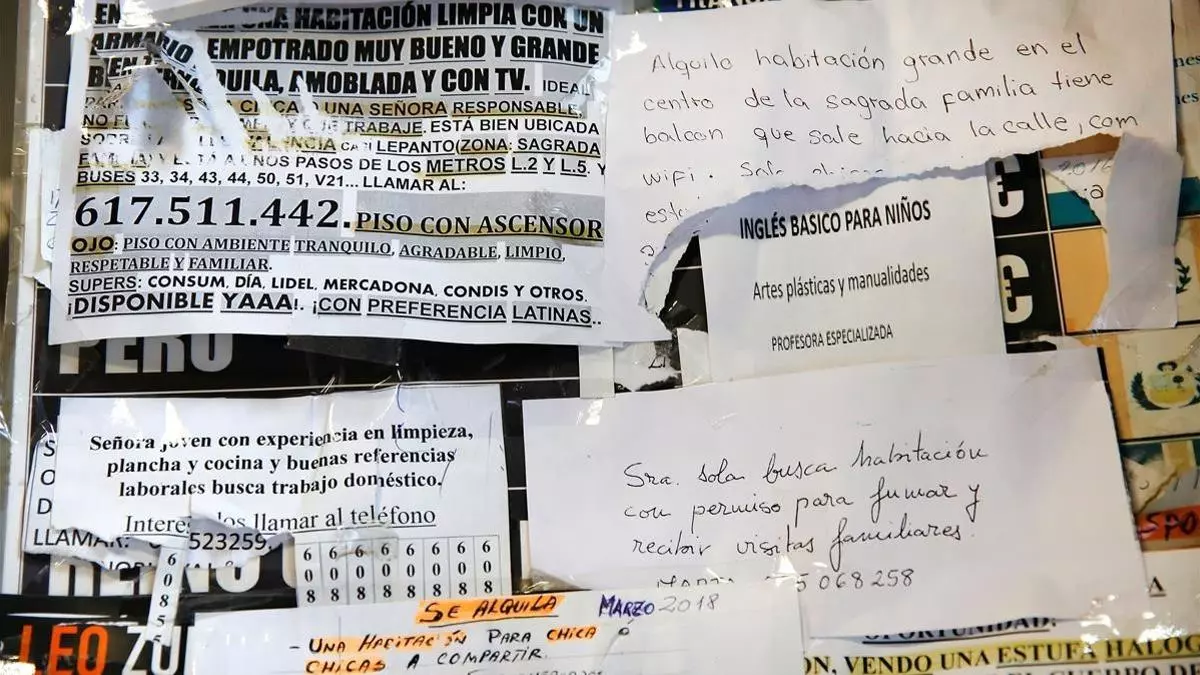 HABITACIÓN LIMPIA CON UN
ARMARIO EMPOTRADO MUY BUENO Y GRANDE
AMOBLADA Y CON TV. IDEAL
CHICA O UNA SEÑORA RESPONSABLE,
NO Y QUE TRABAJE. ESTÁ BIEN UBICADA
LEPANTO(ZONA: SAGRADA
PASOS DE LOS METROS L.2 Y L.5. Y
BUSES 33, 34, 43, 44, 50, 51, V21... LLAMAR AL:
617.511.442. PISO CON ASCENSOR
OJO: PISO CON AMBIENTE TRANQUILO, AGRADABLE, LIMPIO,
RESPETABLE Y FAMILIAR.
SUPERS: CONSUM, DÍA, LIDEL, MERCADONA, CONDIS Y OTROS.
¡DISPONIBLE YAAA!. ¡CON PREFERENCIA LATINAS..
Alquilo habitación grande en el
centro de la sagrada familia tiene
balcon que sale hacia la calle, com
wifi.
2016
INGLÉS BASICO PARA NIÑOS
Artes plásticas y manualidades
PROFESORA ESPECIALIZADA
€
€
PERÚ
Señora joven con experiencia en limpieza,
plancha y cocina y buenas referencias
laborales busca trabajo doméstico.
Interesados llamar al teléfono
LLAMAR: 523259
608 608 608 608 608 608 608 608
60855
Sra. sola busca habitación
con permiso para fumar y
recibir visitas familiares.
5 068 258
SE ALQUILA MARZO 2018
- UNA HABITACIÓN PARA CHICA Ó
CHICAS A COMPARTIR.
LEO ZU
OPORTUNIDAD:
VENDO UNA ESTUFA HALOG
EL CUERPO DE